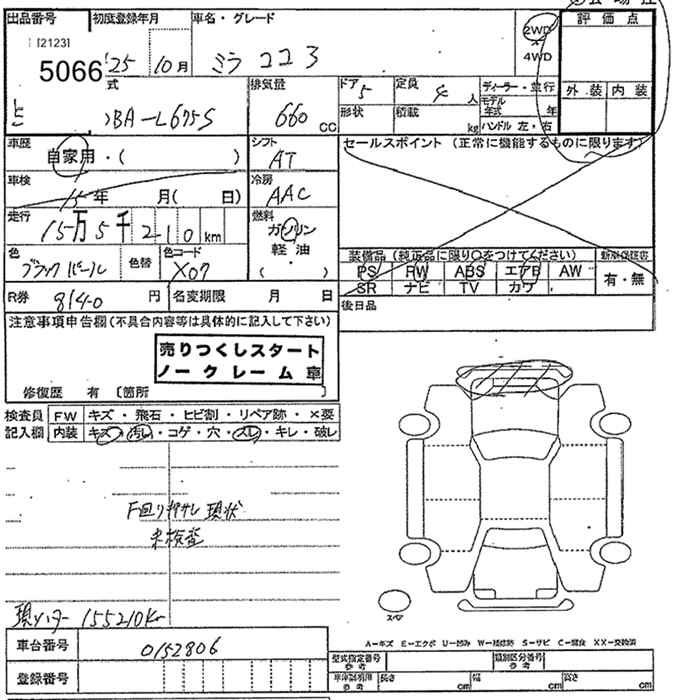 出品番号 初度登録年月 車名・グレード
[2123]
5066 '25 10月 ミラ ココア
2WD
×
4WD
評 価 点
外 装 内 装
式 排気量 ドア 5 定員 4 人 ディーラー・並行
モデル年式 年
DBA-L675S 660 CC 形状 積載 kg ハンドル 左・右
車歴 自家用・( ) シフト AT セールスポイント (正常に機能するものに限ります)
車検 15年 月( 日) 冷房 AAC
走行 15万5千210km 燃料 ガソリン
軽・油
( ・ )
色 ブラック パール 色替 色コード X07
装備品 (純正品に限り○をつけてください) 新車保証書
PS PW ABS エアB AW 有・無
SR ナビ TV カワ
R券 8140 円 名変期限 月 日 後日品
注意事項申告欄(不具合内容等は具体的に記入して下さい)
売りつくしスタート
ノークレーム車
修復歴 有 〔箇所
検査員 FW キズ・飛石・ヒビ割・リペア跡・×要
記入欄 内装 キズ・汚れ・コゲ・穴・スレ・キレ・破レ
F回り押サレ 現状
未検査
現メーター 155210km
スペア
車台番号 0152806
登録番号
A-キズ E-エクボ U-凹み W-補修跡 S-サビ C-腐食 XX-交換済
型式指定番号 参考 類別区分番号 参考
車庫証明用 参考 長さ cm 幅 cm 高さ cm